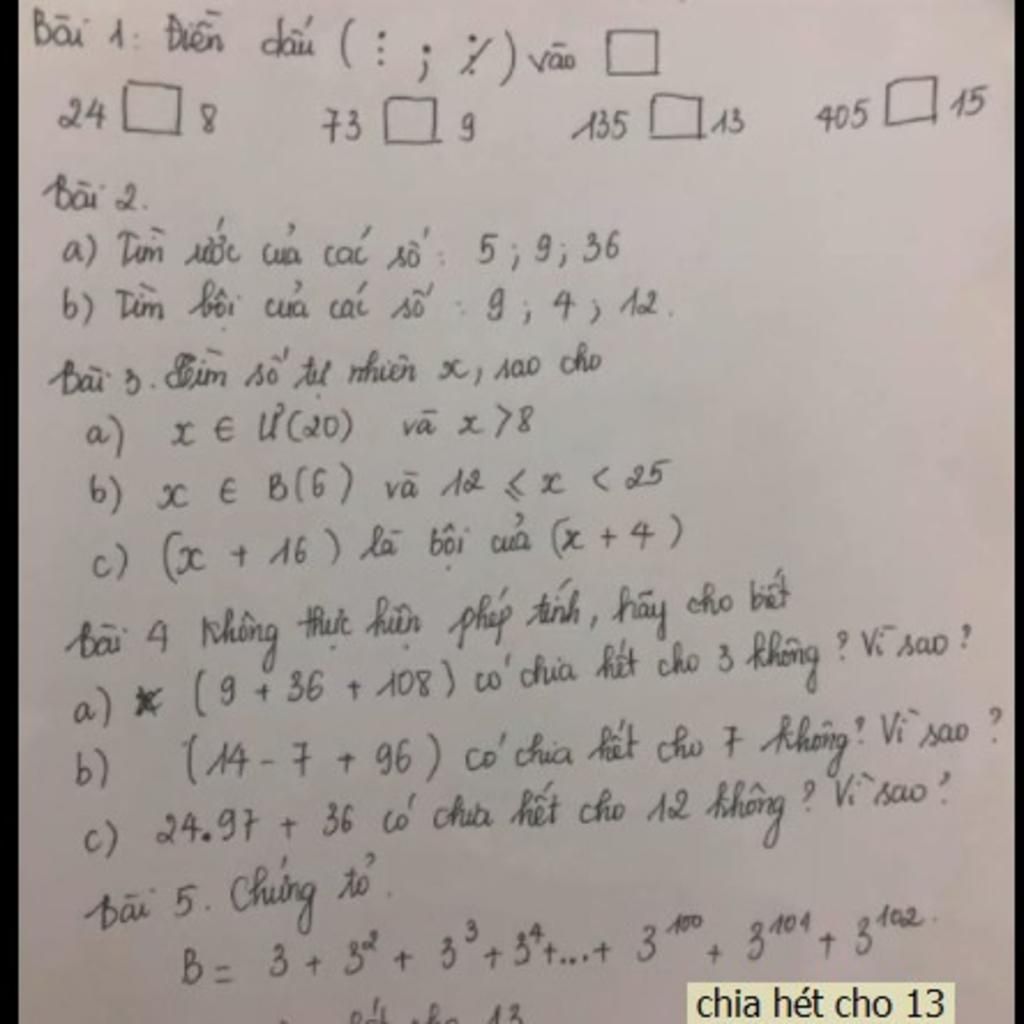 Bài 1: Điền dấu (⋮ ; ⋮̸) vào □
24 □ 8 73 □ 9 135 □ 13 405 □ 15
Bài 2.
a) Tìm ước của các số: 5 ; 9 ; 36
b) Tìm bội của các số : 9 ; 4 ; 12.
Bài 3. Tìm số tự nhiên x, sao cho
a) x ∈ Ư(20) và x > 8
b) x ∈ B(6) và 12 ⩽ x < 25
c) (x + 16) là bội của (x + 4)
Bài 4 Không thực hiện phép tính, hãy cho biết
a) (9 + 36 + 108) có chia hết cho 3 không ? Vì sao ?
b) (14 - 7 + 96) có chia hết cho 7 không? Vì sao ?
c) 24.97 + 36 có chia hết cho 12 không ? Vì sao ?
Bài 5. Chứng tỏ.
B = 3 + 3² + 3³ + 3⁴+...+ 3¹⁰⁰ + 3¹⁰¹ + 3¹⁰².
hết cho 13
chia hét cho 13